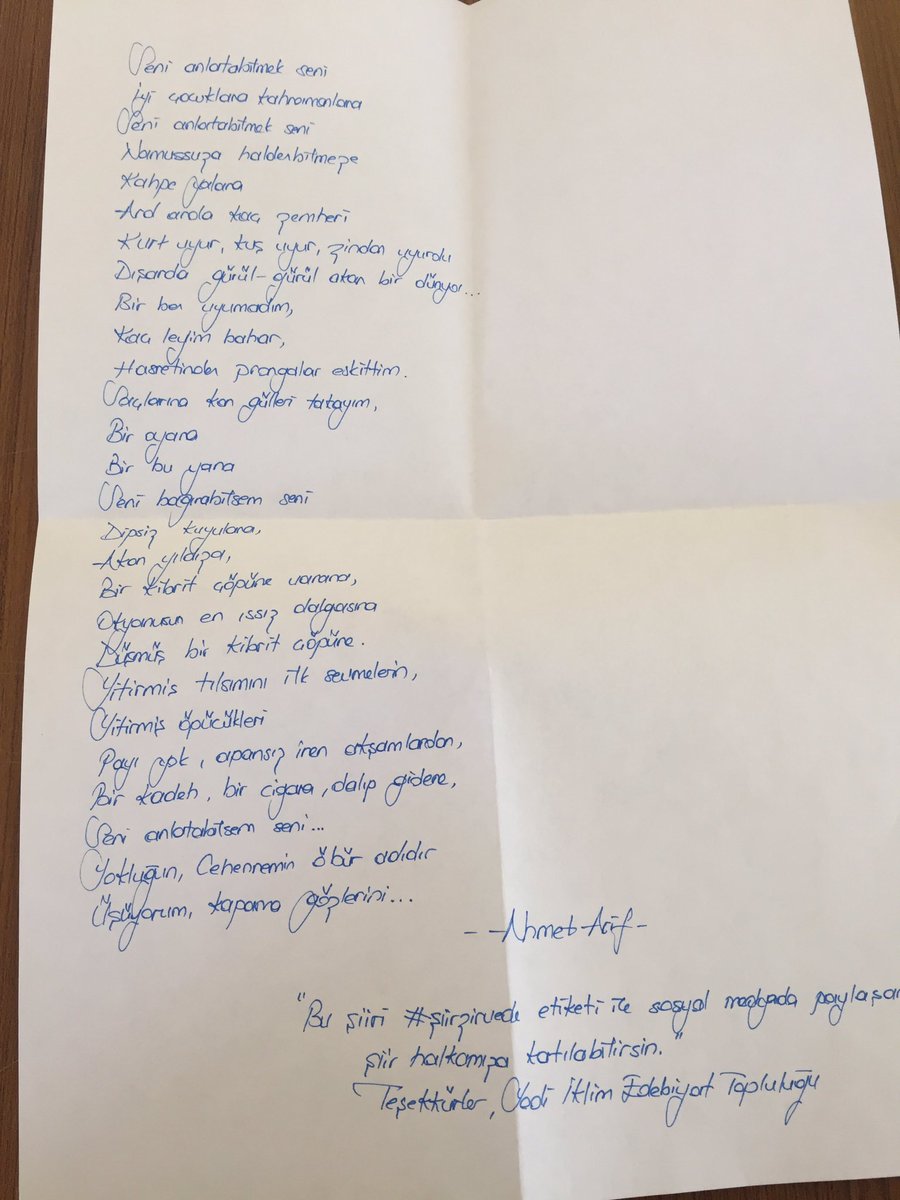 Seni anlatabilmek seni
İyi çocuklara kahramanlara
Seni anlatabilmek seni
Namussuza haldenbilmeze
Kahpe yalana
Ard arda kaç zemheri
Kurt uyur, kuş uyur, zindan uyurdu
Dışarda gürül-gürül akan bir dünya...
Bir ben uyumadım,
Kaç leyim bahar,
Hasretinden prangalar eskittim.
Saçlarına kan gülleri takayım,
Bir oyana
Bir bu yana
Seni bağırabilsem seni
Dipsiz kuyulara,
Akan yıldıza,
Bir kibrit çöpüne varana,
Okyanusun en ıssız dalgasına
Düşmüş bir kibrit çöpüne.
Yitirmiş tılsımını ilk sevmelerin,
Yitirmiş öpücükleri
Payı yok, apansız inen akşamlardan,
Bir kadeh, bir cigara, dalıp gidene,
Seni anlatabilsem seni...
Yokluğun, Cehennemin öbür adıdır
Üşüyorum, kapama gözlerini...
- -Ahmet Arif-
"Bu şiiri #şiirzirvede etiketi ile sosyal medyada paylaşarak
şiir halkamıza katılabilirsin."
Teşekkürler, Yedi İklim Edebiyat Topluluğu